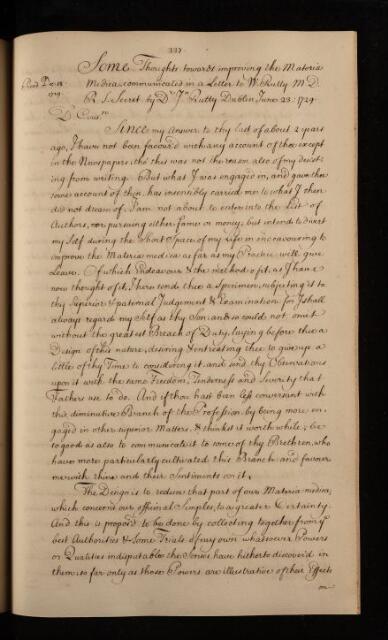 337.
Some Thoughts towards improving the Materia
Medica, communicated in a Letter to W. Rutty M.D.
R. S. Secret. by Dr. Jn. Rutty Dublin June 23. 1729.
Read Dec. 18.
1729.
Dr. Cous:n
Since my answer to thy last of about 2 years
ago, I have not been favour'd with any account of thee except
in the Newspapers, tho' this was not the reason also of my desist-
ing from writing. But what I was engaged in, and gave thee
some account of then, has insensibly carried me to what I then
did not dream of. I am not about to enter into the List of
Authors, nor pursuing either fame or money, but intend to divert
my Self during the Short Space of my life in endeavouring to
improve the Materia medica as far as my Practice will give
Leave. Of which Endeavour & the method of it, as I have
now thought of it, I here send thee a Specimen, subjecting it to
thy Superior & paternal Judgement & Examination for I shall
always regard my Self as thy Son, and so could not omit
without the greatest Breach of Duty, laying before thee a
Design of this nature, desiring & intreating thee to give up a
little of thy Time to considering it, and send thy Observations
upon it with the same Freedom, Tenderness and Severity that
Fathers use to do. And if thou hast been less conversant with
this diminutive Branch of the Profession, by being more en-
gaged in other superior Matters, & thinkst it worth while, be
so good as also to communicate it to some of thy Brethren, who
have more particularly cultivated this Branch and favour
me with thine and their Sentiments on it.
The Design is to reduce that part of our Materia medica,
which concerns our officinal Simples, to a greater Certainty.
And this is propos'd to be done by collecting together from ye
best Authorities & Some Trials of my own whatsoever Powers
or Qualities indisputable the Senses have hitherto discover'd in
them: so far only as those Powers are illustrative of their Effects
on